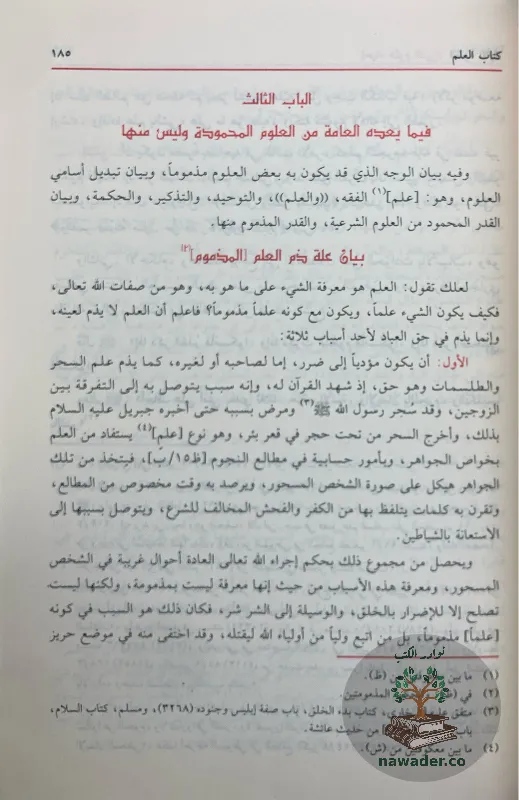 كتاب العلم
١٨٥
الباب الثالث
فيما يعده العامة من العلوم المحمودة وليس منها
وفيه بيان الوجه الذي قد يكون به بعض العلوم مذموماً، وبيان تبديل أسامي
العلوم، وهو: [علم](١) الفقه، ((والعلم))، والتوحيد، والتذكير، والحكمة، وبيان
القدر المحمود من العلوم الشرعية، والقدر المذموم منها.
بيان علة ذم العلم [المذموم](٢)
لعلك تقول: العلم هو معرفة الشيء على ما هو به، وهو من صفات الله تعالى،
فكيف يكون الشيء علماً، ويكون مع كونه علماً مذموماً؟ فاعلم أن العلم لا يذم لعينه،
وإنما يذم في حق العباد لأحد أسباب ثلاثة:
الأول: أن يكون مؤدياً إلى ضرر، إما لصاحبه أو لغيره، كما يذم علم السحر
والطلسمات وهو حق، إذ شهد القرآن له، وإنه سبب يتوصل به إلى التفرقة بين
الزوجين، وقد سُحِر رسول الله ﷺ(٣) ومرض بسببه حتى أخبره جبريل عليه السلام
بذلك، وأخرج السحر من تحت حجر في قعر بئر، وهو نوع [علم](٤) يستفاد من العلم
بخواص الجواهر، وبأمور حسابية في مطالع النجوم [ظ/١٥ب]، فيتخذ من تلك
الجواهر هيكل على صورة الشخص المسحور، ويرصد به وقت مخصوص من المطالع،
وتقرن به كلمات يتلفظ بها من الكفر والفحش المخالف للشرع، ويتوصل بسببها إلى
الاستعانة بالشياطين.
ويحصل من مجموع ذلك بحكم إجراء الله تعالى العادة أحوال غريبة في الشخص
المسحور، ومعرفة هذه الأسباب من حيث إنها معرفة ليست بمذمومة، ولكنها ليست
تصلح إلا للإضرار بالخلق، والوسيلة إلى الشر شر، فكان ذلك هو السبب في كونه
[علماً] مذموماً، بل من اتبع ولياً من أولياء الله ليقتله، وقد اختفى منه في موضع حريز
(١) ما بين من (ظ).
(٢) في (ظ) المذمومتين.
(٣) متفق عليه، البخاري، كتاب بدء الخلق، باب صفة إبليس وجنوده (٣٢٦٨)، ومسلم، كتاب السلام،
باب من حديث عائشة.
(٤) ما بين معكوفتين من (ش).
نوادر الكتب
nawader.co